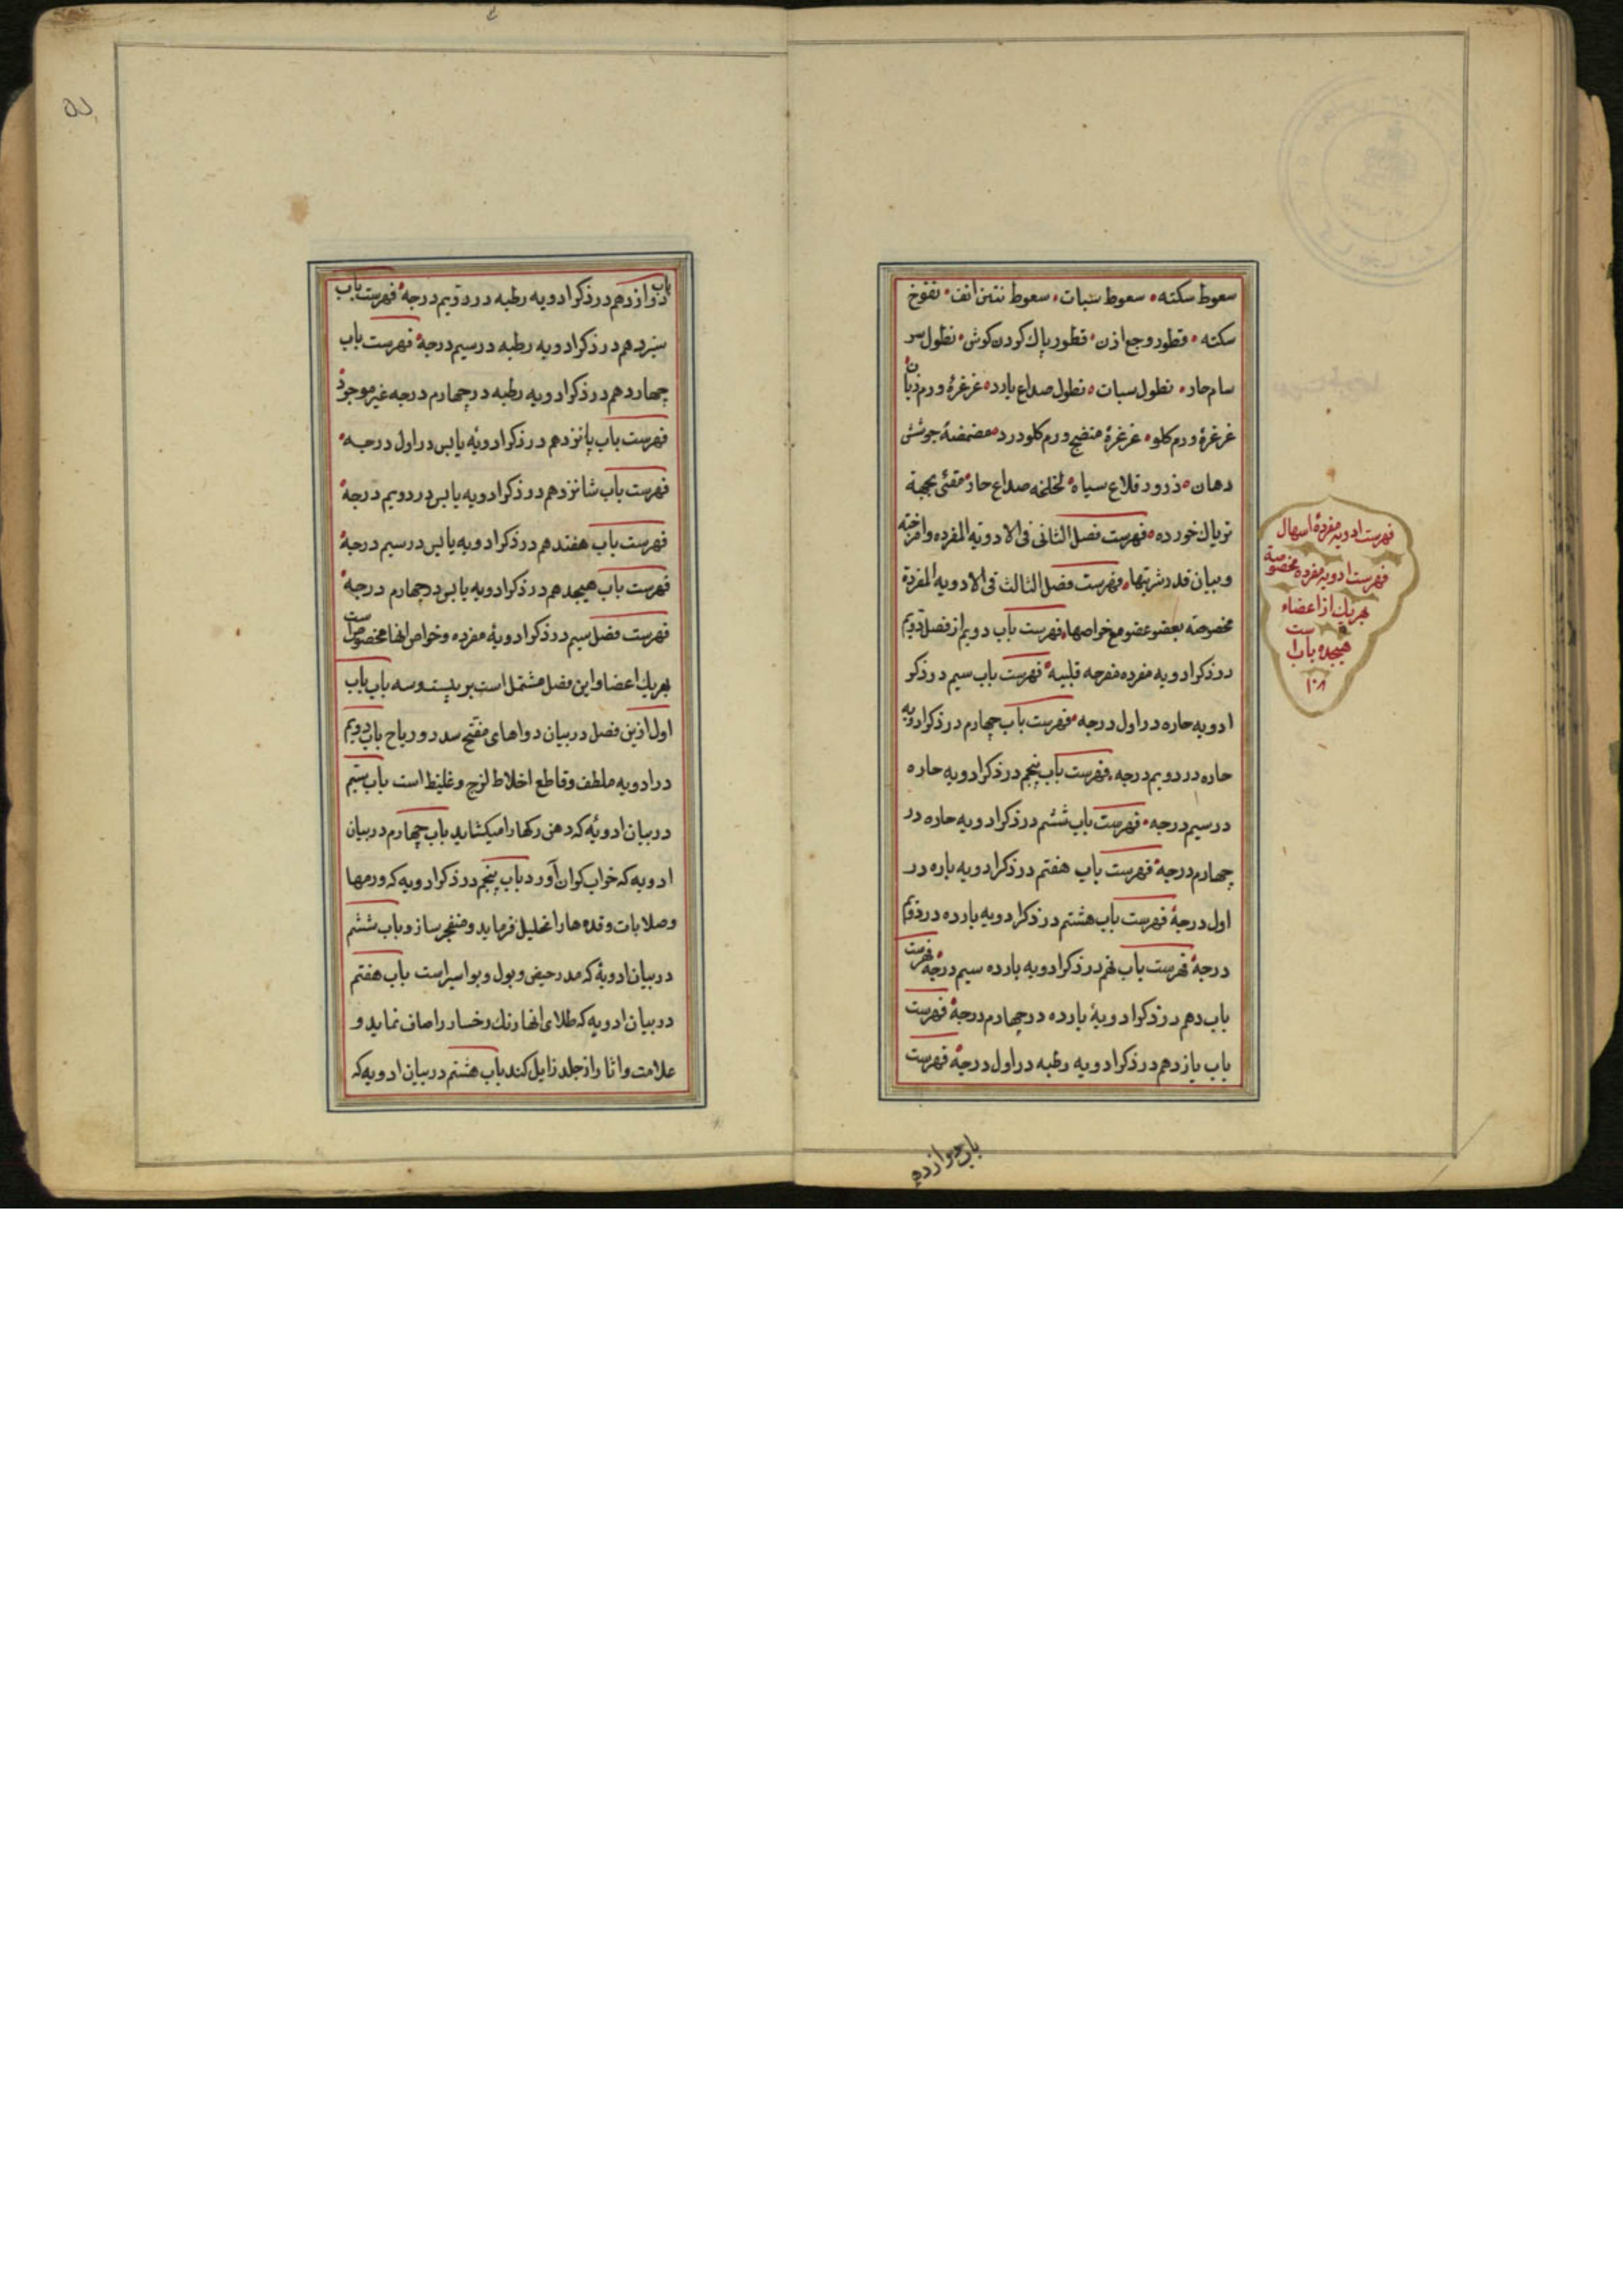 سعوط سکته سعوط سبات سعوط نتن انف نفوخ
سکته قطور وجع اذن قطور پاک کردن کوش نطول سر
سام حار نطول سبات نطول صداع بارد غرغرۀ ورم زبان
غرغرۀ ورم کلو غرغرۀ منضج ورم کلو درد مضمضۀ جوشش
دهان ذرور قلاع سیاه لخلخه صداع حاد مقئی بجهة
تریاک خورده فهرست فصل الثانی فی الادویة المفرده وامزجته
و بیان قدر شربتها فهرست فصل الثالث فی الادویه المفردة
مخصوصة بعضو عضو مع خواصها فهرست باب دویم از فصل دویم
در ذکر ادویه مفرده مفرحه قلبیه فهرست باب سیم در ذکر
ادویه حاره در اول درجه فهرست باب چهارم در ذکر ادویه
حاره در دویم درجه فهرست باب پنجم در ذکر ادویه حاره
در سیم درجه فهرست باب ششم در ذکر ادویه حاره در
چهارم درجۀ فهرست باب هفتم در ذکر ادویه بارده در
اول درجۀ فهرست باب هشتم در ذکر ادویه بارده در دویم
درجۀ فهرست باب نهم در ذکر ادویه بارده سیم درجۀ فهرست
باب دهم در ذکر ادویۀ بارده در چهارم درجۀ فهرست
باب یازدهم در ذکر ادویه رطبه در اول درجۀ فهرست
فهرست ادویه مفردۀ اسهال
فهرست ادویه مفرده مخصوصة
بهریک از اعضاء
هیجده باب است
۱۰۸
باب دوازده
باب دوازدهم در ذکر ادویه رطبه در دویم درجۀ فهرست باب
سیزدهم در ذکر ادویه رطبه در سیم درجۀ فهرست باب
چهاردهم در ذکر ادویه رطبه در چهارم درجه غیر موجود
فهرست باب پانزدهم در ذکر ادویۀ یابس در اول درجه
فهرست باب شانزدهم در ذکر ادویه یابس در دویم درجۀ
فهرست باب هفندهم در ذکر ادویه یابس در سیم درجۀ
فهرست باب هیجدهم در ذکر ادویه یابس در چهارم درجۀ
فهرست فصل سیم در ذکر ادویۀ مفرده و خواص انها مخصوص است
بهریک اعضا و این فصل مشتمل است بر بیست و سه باب باب
اول ازین فصل در بیان دواهای مفتح سدد و ریاح باب دویم
در ادویه ملطف و قاطع اخلاط لزج و غلیظ است باب سیم
در بیان ادویۀ که دهن رکها را میکشاید باب چهارم در بیان
ادویه که خواب کران آورد باب پنجم در ذکر ادویه که ورمها
و صلابات و قده ها را تحلیل فرماید و منفجر سازد باب ششم
در بیان ادویۀ که مدر حیض و بول و بواسیر است باب هفتم
در بیان ادویه که طلای انها رنک رخسار را صاف نماید و
علامت و اثار از جلد زایل کند باب هشتم در بیان ادویه که